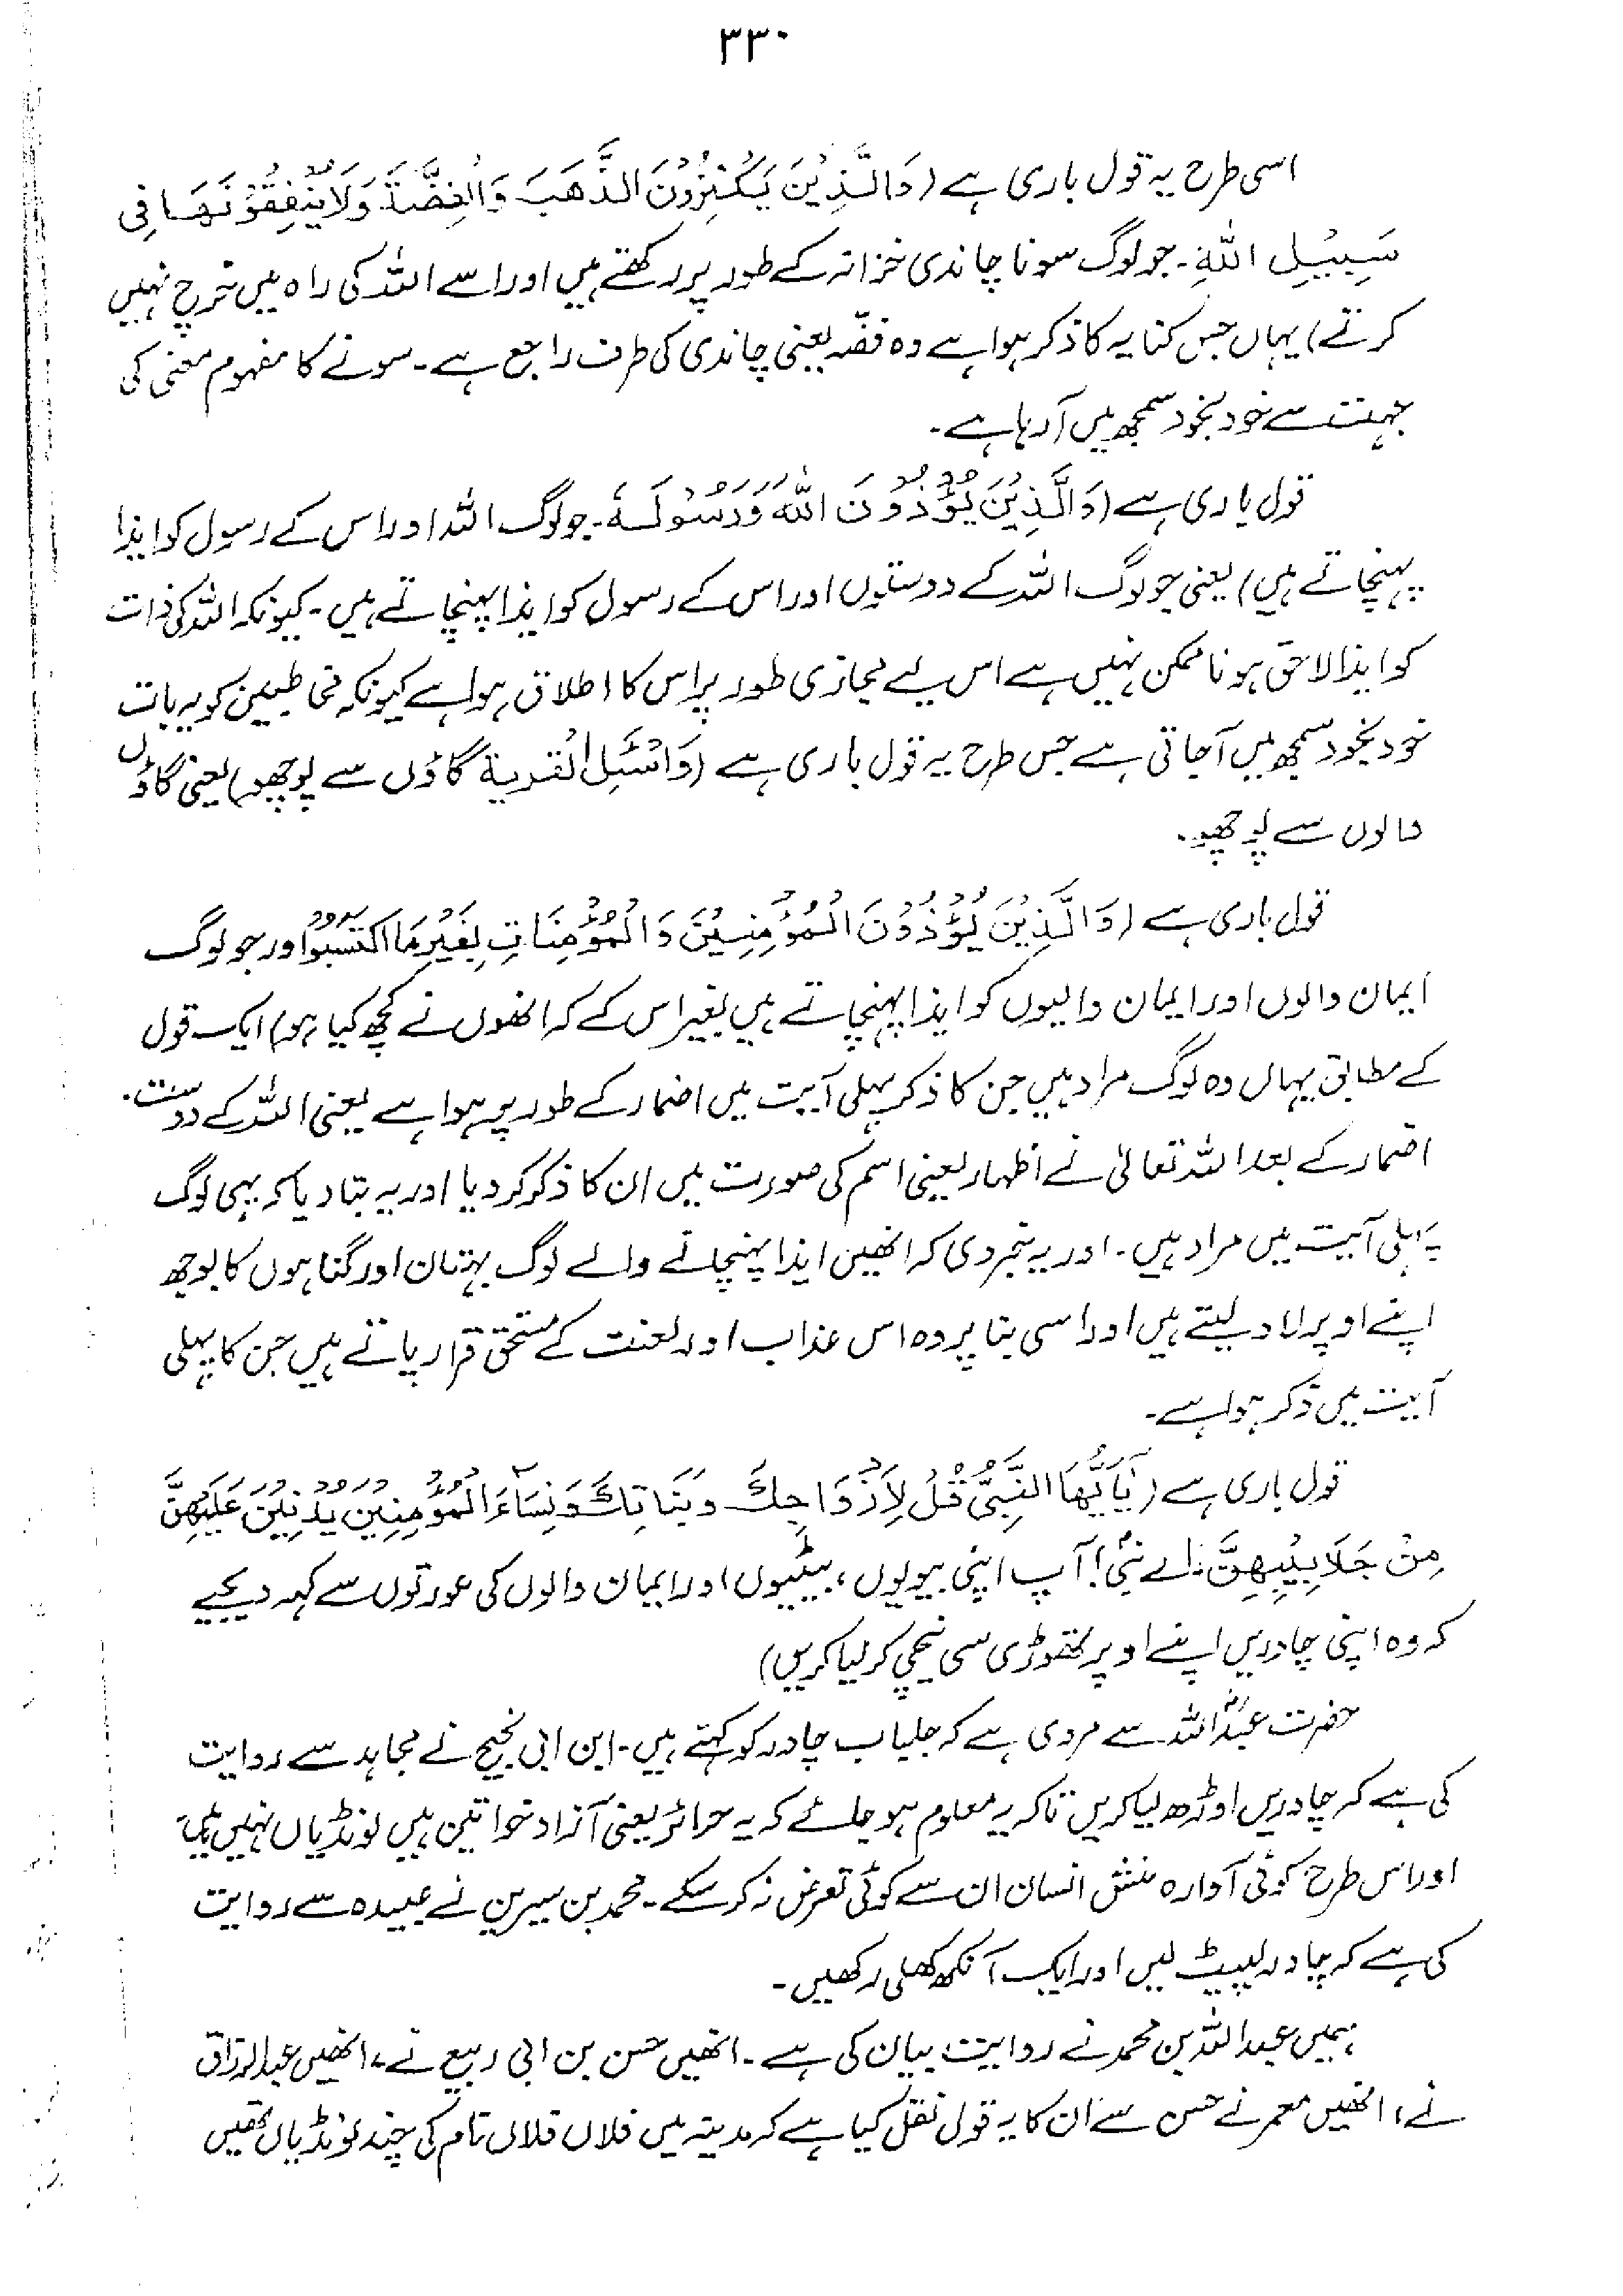 ۳۳۰
اسی طرح یہ قول باری ہے (وَالَّذِیْنَ یَکْنِزُوْنَ الذَّھَبَ وَالْفِضَّۃَ وَلَا یُنْفِقُوْنَھَا فِی
سَبِیْلِ اللّٰہِ۔ جو لوگ سونا چاندی خزانہ کے طور پر رکھتے ہیں اور اسے اللہ کی راہ میں خرچ نہیں
کرتے) یہاں جس کنایہ کا ذکر ہوا ہے وہ فضّہ یعنی چاندی کی طرف راجع ہے۔ سونے کا مفہوم معنی کی
جہت سے خود بخود سمجھ میں آ رہا ہے۔
قول باری ہے (وَالَّذِیْنَ یُؤْذُوْنَ اللّٰہَ وَرَسُوْلَہٗ۔ جو لوگ اللہ اور اس کے رسول کو ایذا
پہنچاتے ہیں) یعنی جو لوگ اللہ کے دوستوں اور اس کے رسول کو ایذا پہنچاتے ہیں۔ کیونکہ اللہ کی ذات
کو ایذا لاحق ہونا ممکن نہیں ہے اس لیے مجازی طور پر اس کا اطلاق ہوا ہے کیونکہ مخاطبین کو یہ بات
خود بخود سمجھ میں آ جاتی ہے جس طرح یہ قول باری ہے (وَاسْئَلِ الْقریۃ گاؤں سے پوچھو) یعنی گاؤں
والوں سے پوچھو۔
قول باری ہے (وَالَّذِیْنَ یُؤْذُوْنَ الْمُؤْمِنِیْنَ وَالْمُؤْمِنَاتِ بِغَیْرِ مَا اکْتَسَبُوْا اور جو لوگ
ایمان والوں اور ایمان والیوں کو ایذا پہنچاتے ہیں بغیر اس کے کہ انھوں نے کچھ کیا ہو) ایک قول
کے مطابق یہاں وہ لوگ مراد ہیں جن کا ذکر پہلی آیت میں اضمار کے طور پر ہوا ہے یعنی اللہ کے دوست۔
اضمار کے بعد اللہ تعالیٰ نے اظہار یعنی اسم کی صورت میں ان کا ذکر کر دیا اور یہ بتا دیا کہ یہی لوگ
پہلی آیت میں مراد ہیں۔ اور یہ خبر دی کہ انھیں ایذا پہنچانے والے لوگ بہتان اور گناہوں کا بوجھ
اپنے اوپر لاد لیتے ہیں اور اسی بنا پر وہ اس عذاب اور لعنت کے مستحق قرار پاتے ہیں جن کا پہلی
آیت میں ذکر ہوا ہے۔
قول باری ہے (یٰٓاَیُّھَا النَّبِیُّ قُلْ لِاَزْوَاجِکَ وَبَنَاتِکَ وَنِسَآءِ الْمُؤْمِنِیْنَ یُدْنِیْنَ عَلَیْھِنَّ
مِنْ جَلَابِیْبِھِنَّ: اے نبیؐ! آپ اپنی بیویوں، بیٹیوں اور ایمان والوں کی عورتوں سے کہہ دیجیے
کہ وہ اپنی چادریں اپنے اوپر تھوڑی سی نیچی کر لیا کریں)
حضرت عبداللہؓ سے مروی ہے کہ جلباب چادر کو کہتے ہیں۔ ابن ابی نجیح نے مجاہد سے روایت
کی ہے کہ چادریں اوڑھ لیا کریں تاکہ یہ معلوم ہو جائے کہ یہ حرائر یعنی آزاد خواتین ہیں لونڈیاں نہیں ہیں
اور اس طرح کوئی آوارہ منش انسان ان سے کوئی تعرض نہ کر سکے۔ محمد بن سیرین نے عبیدہ سے روایت
کی ہے کہ چادر لپیٹ لیں اور ایک آنکھ کھلی رکھیں۔
ہمیں عبداللہ بن محمد نے روایت بیان کی ہے۔ انھیں حسن بن ابی ربیع نے، انھیں عبدالرزاق
نے، انھیں معمر نے حسن سے ان کا یہ قول نقل کیا ہے کہ مدینہ میں فلاں فلاں نام کی چند لونڈیاں تھیں